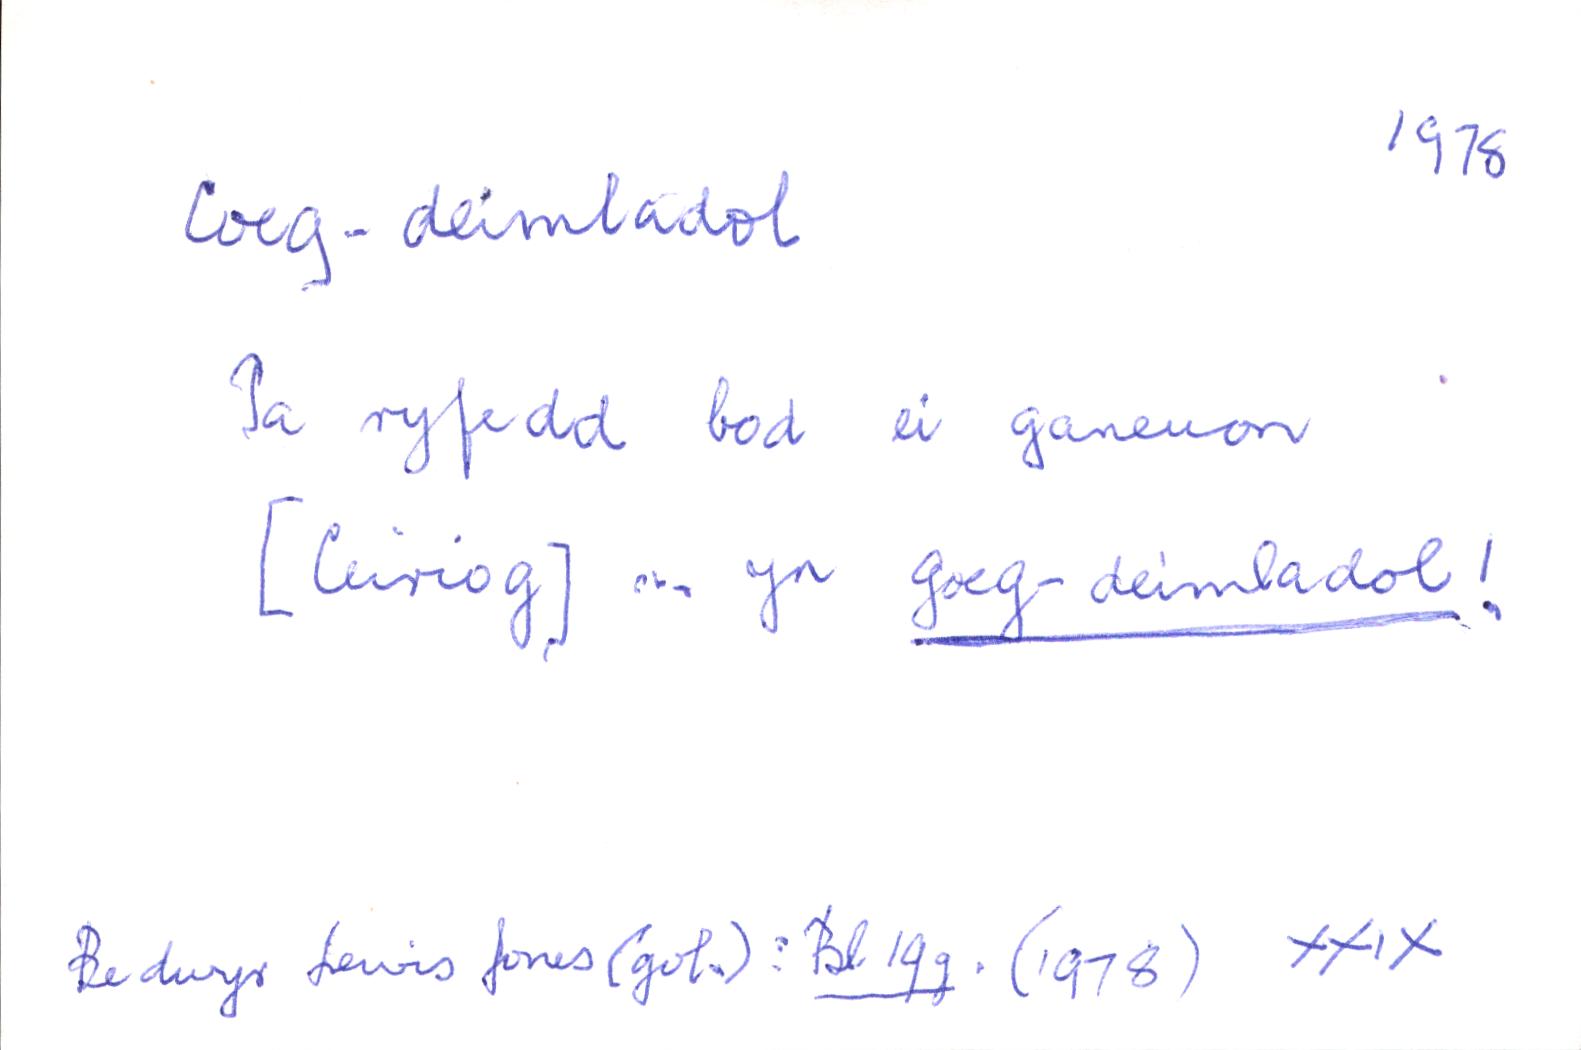 1978
Coeg-deimladol
Pa ryfedd bod ei ganeuon
[Ceiriog] ... yn goeg-deimladol!
Bedwyr Lewis Jones (gol.): Bl 19g. (1978) XXIX